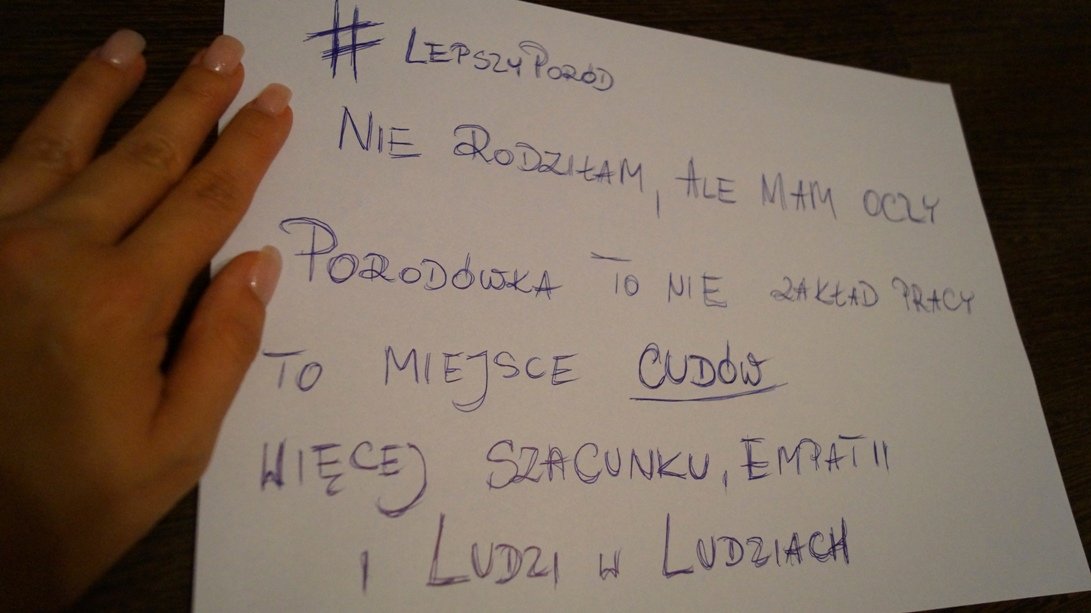 #LEPSZYPORÓD
NIE RODZIŁAM, ALE MAM OCZY
PORODÓWKA TO NIE ZAKŁAD PRACY
TO MIEJSCE CUDÓW
WIĘCEJ SZACUNKU, EMPATII
I LUDZI W LUDZIACH